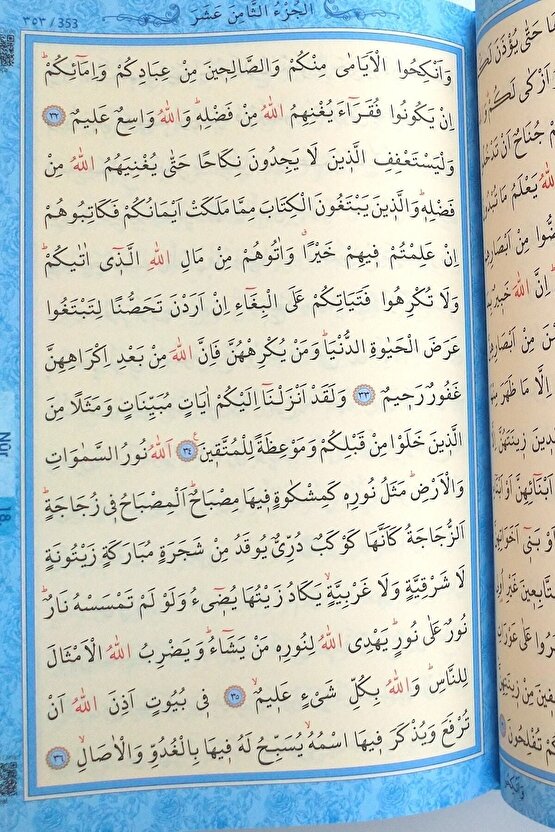 ٣٥٣ / 353
اَلْجُزْءُ الثَّامِنَ عَشَرَ
وَاَنْكِحُوا الْاَيَامٰى مِنْكُمْ وَالصَّالِحٖينَ مِنْ عِبَادِكُمْ وَاِمَٓائِكُمْؕ
اِنْ يَكُونُوا فُقَرَٓاءَ يُغْنِهِمُ اللّٰهُ مِنْ فَضْلِهٖؕ وَاللّٰهُ وَاسِعٌ عَلٖيمٌ ٣٢
وَلْيَسْتَعْفِفِ الَّذٖينَ لَا يَجِدُونَ نِكَاحًا حَتّٰى يُغْنِيَهُمُ اللّٰهُ مِنْ
فَضْلِهٖؕ وَالَّذٖينَ يَبْتَغُونَ الْكِتَابَ مِمَّا مَلَكَتْ اَيْمَانُكُمْ فَكَاتِبُوهُمْ
اِنْ عَلِمْتُمْ فٖيهِمْ خَيْرًاۗ وَاٰتُوهُمْ مِنْ مَالِ اللّٰهِ الَّذٖٓي اٰتٰيكُمْؕ
وَلَا تُكْرِهُوا فَتَيَاتِكُمْ عَلَى الْبِغَٓاءِ اِنْ اَرَدْنَ تَحَصُّنًا لِتَبْتَغُوا
عَرَضَ الْحَيٰوةِ الدُّنْيَاؕ وَمَنْ يُكْرِهْهُنَّ فَاِنَّ اللّٰهَ مِنْ بَعْدِ اِكْرَاهِهِنَّ
غَفُورٌ رَحٖيمٌ ٣٣ وَلَقَدْ اَنْزَلْنَٓا اِلَيْكُمْ اٰيَاتٍ مُبَيِّنَاتٍ وَمَثَلًا مِنَ
الَّذٖينَ خَلَوْا مِنْ قَبْلِكُمْ وَمَوْعِظَةً لِلْمُتَّقٖينَ ٣٤ اَللّٰهُ نُورُ السَّمٰوَاتِ
وَالْاَرْضِؕ مَثَلُ نُورِهٖ كَمِشْكٰوةٍ فٖيهَا مِصْبَاحٌؕ اَلْمِصْبَاحُ فٖي زُجَاجَةٍؕ
اَلزُّجَاجَةُ كَاَنَّهَا كَوْكَبٌ دُرِّيٌّ يُوقَدُ مِنْ شَجَرَةٍ مُبَارَكَةٍ زَيْتُونَةٍ
لَا شَرْقِيَّةٍ وَلَا غَرْبِيَّةٍۙ يَكَادُ زَيْتُهَا يُضٖٓيءُ وَلَوْ لَمْ تَمْسَسْهُ نَارٌؕ
نُورٌ عَلٰى نُورٍؕ يَهْدِي اللّٰهُ لِنُورِهٖ مَنْ يَشَٓاءُؕ وَيَضْرِبُ اللّٰهُ الْاَمْثَالَ
لِلنَّاسِؕ وَاللّٰهُ بِكُلِّ شَيْءٍ عَلٖيمٌۙ ٣٥ فٖي بُيُوتٍ اَذِنَ اللّٰهُ اَنْ
تُرْفَعَ وَيُذْكَرَ فٖيهَا اسْمُهُۙ يُسَبِّحُ لَهُ فٖيهَا بِالْغُدُوِّ وَالْاٰصَالِۙ ٣٦
Nûr
18